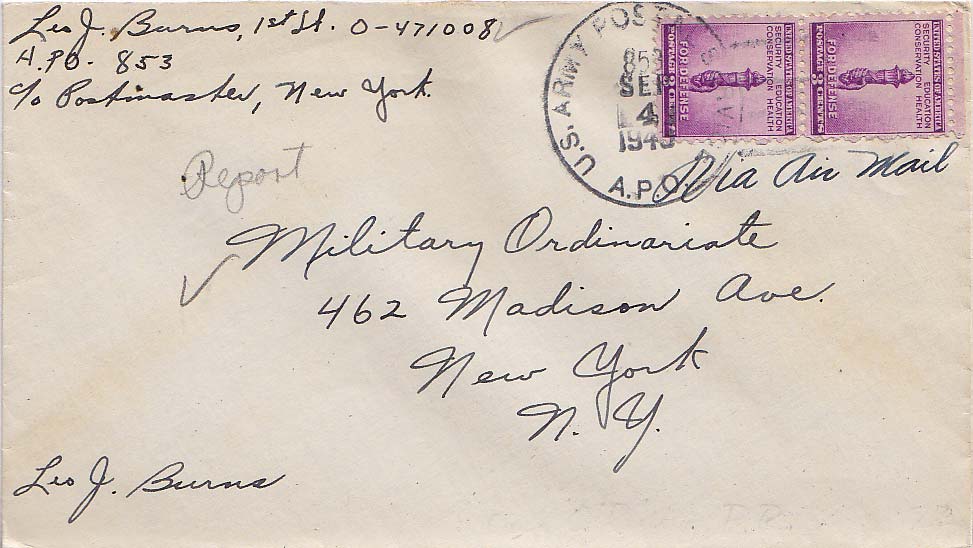 Leo J. Burns, 1st Lt. O-471008
A.P.O. 853
c/o Postmaster, New York.
U.S. ARMY POSTAL
853
SEP
4
1943
A.P.O.
UNITED STATES OF AMERICA
SECURITY EDUCATION
CONSERVATION HEALTH
FOR DEFENSE
POSTAGE 3 CENTS
UNITED STATES OF AMERICA
SECURITY EDUCATION
CONSERVATION HEALTH
FOR DEFENSE
POSTAGE 3 CENTS
Via Air Mail
Report
Military Ordinariate
462 Madison Ave.
New York
N. Y.
Leo J. Burns